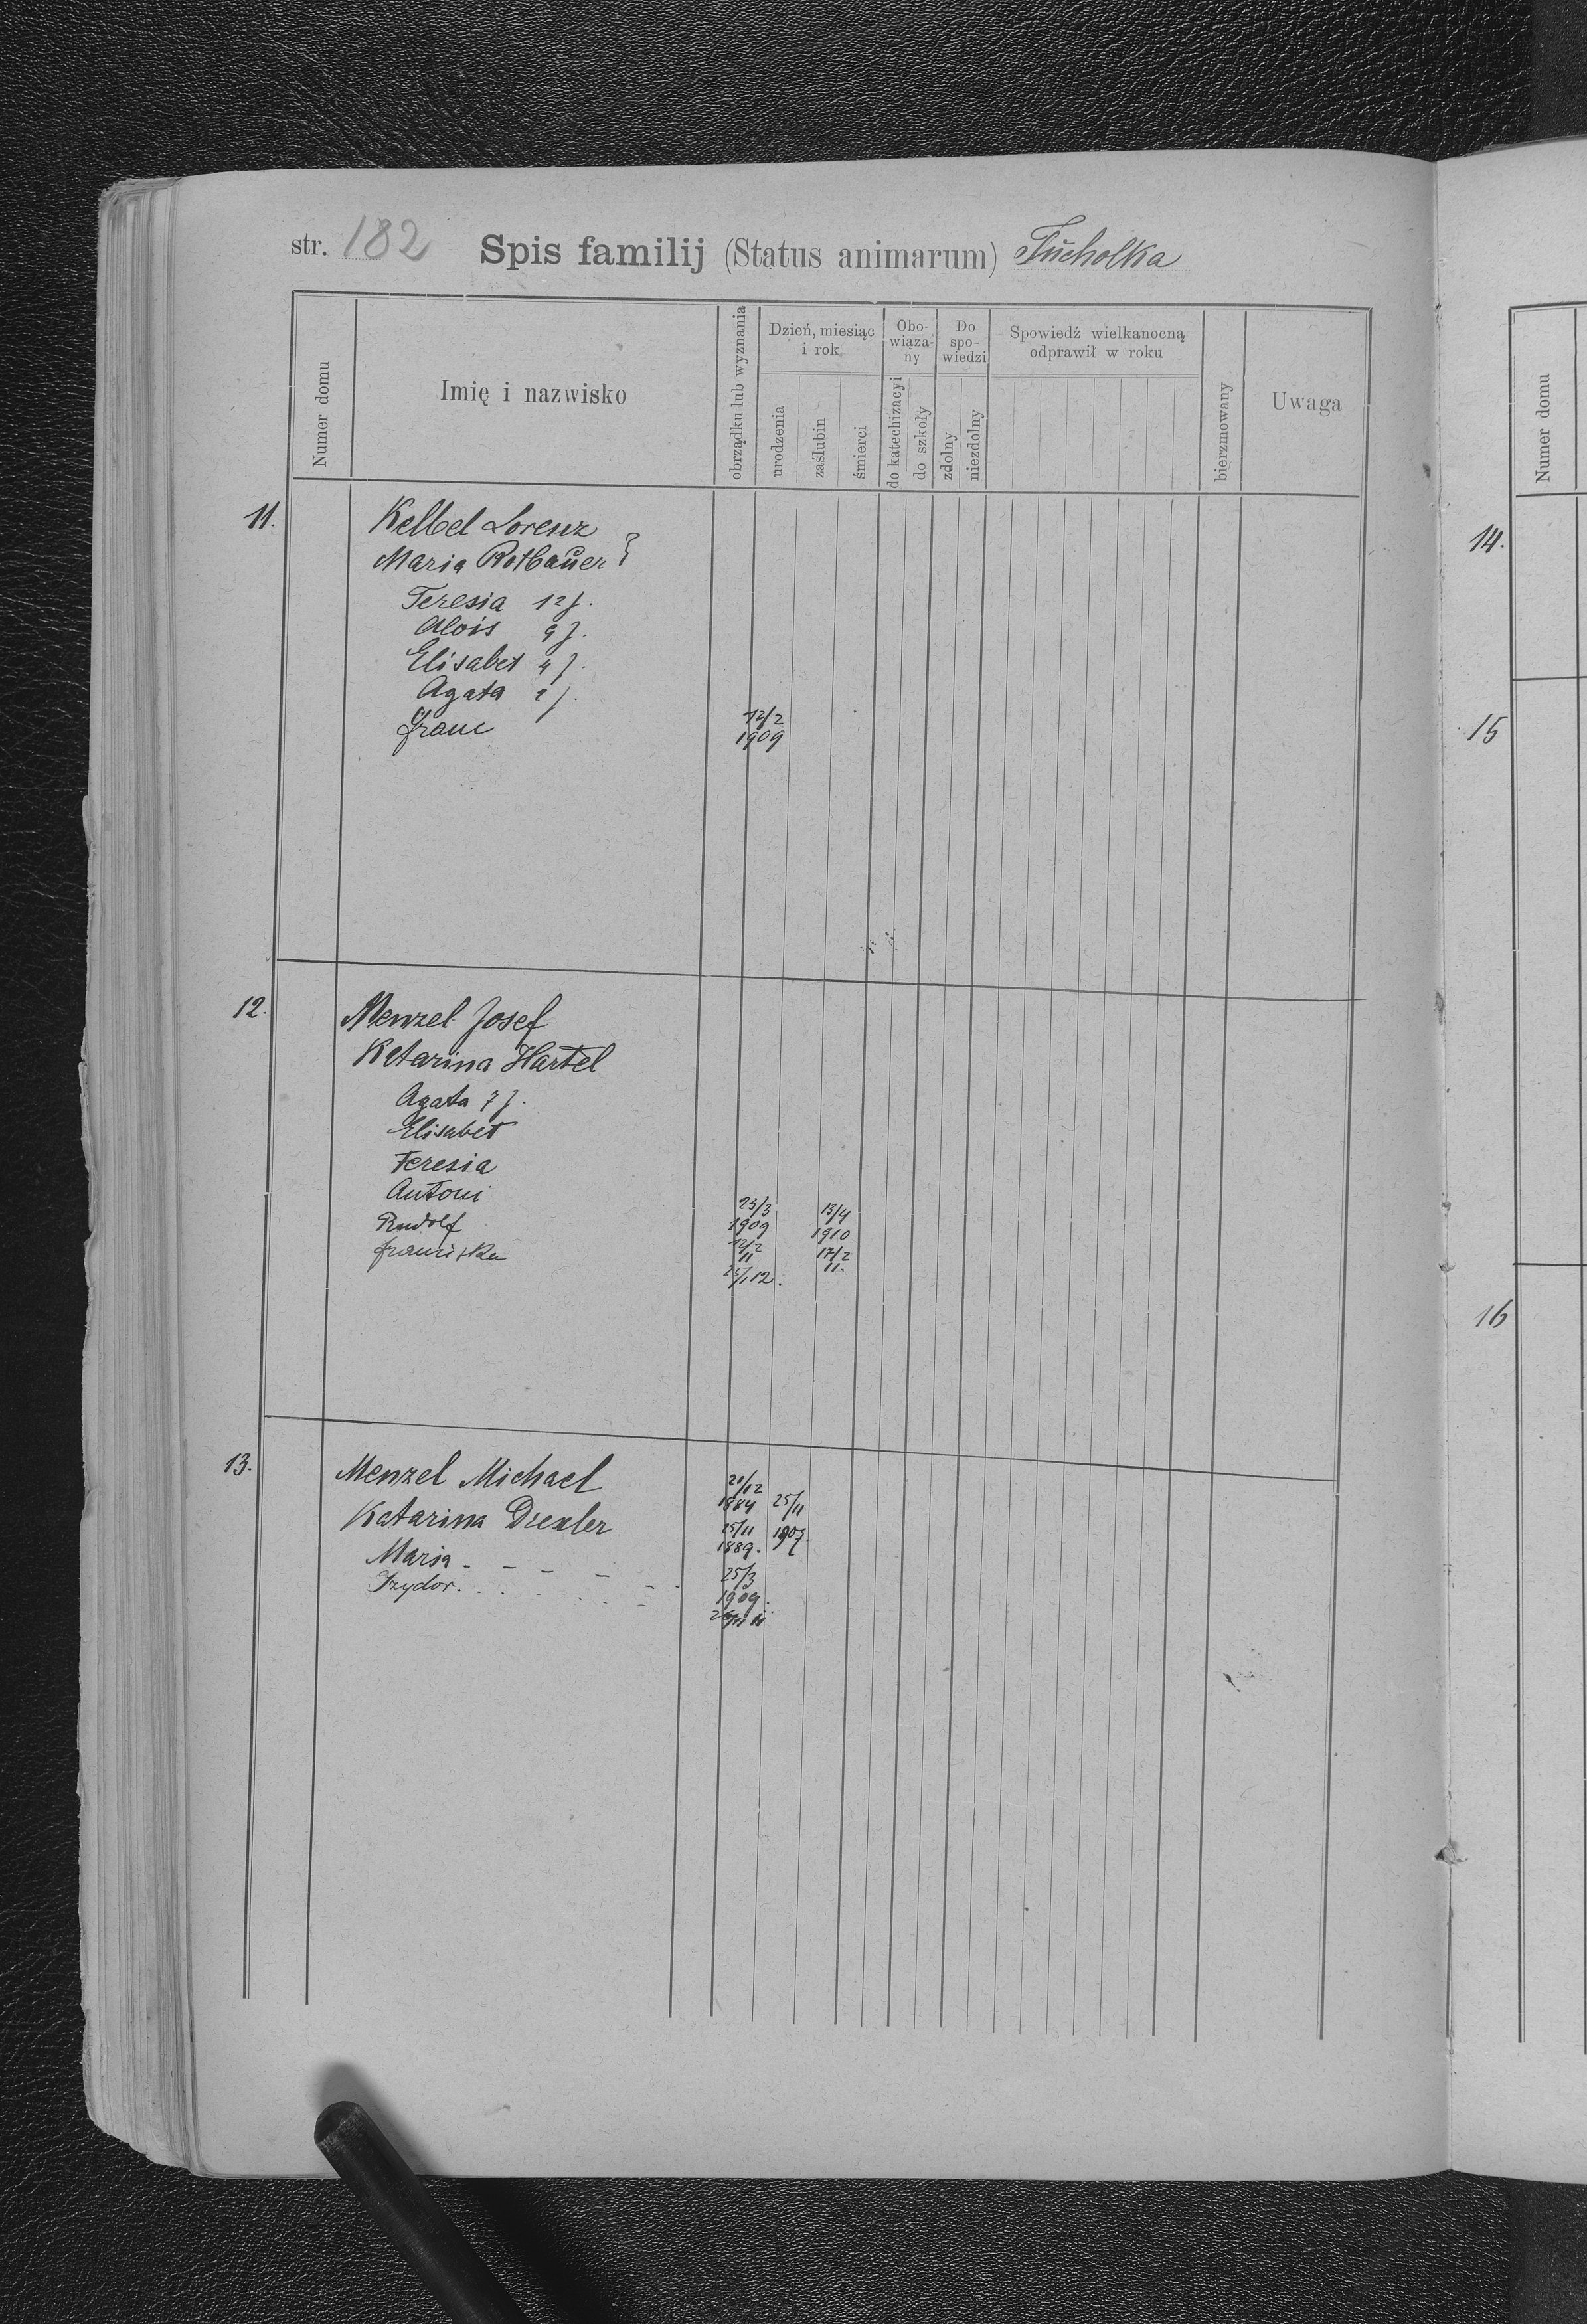 str. 182 Spis familij (Status animarum) Tucholka
Numer domu
Imię i nazwisko
obrządku lub wyznania
Dzień, miesiąc i rok
urodzenia
zaślubin
śmierci
Obo-wiąza-ny
do katechizacyi
do szkoły
Do spo-wiedzi
zdolny
niezdolny
Spowiedź wielkanocną odprawił w roku
bierzmowany
Uwaga
11. Kelbel Lorenz
Maria Rotbauer
Teresia 12 J.
Alois 9 J.
Elisabet 4 J.
Agata 2 J.
Franc 12/2 1909
12. Menzel Josef
Katarina Hartel
Agata 7 J.
Elisabet
Teresia
Antoni 25/3 1909 13/4 1910
Rudolf 12/2 11 17/2 11.
Franciska 25/1 12.
13. Menzel Michael 21/12 1884 25/11 1907.
Katarina Drexler 25/11 1889.
Maria - - - - 25/3 1909.
Izydor. 11 11
Numer domu
14.
15
16